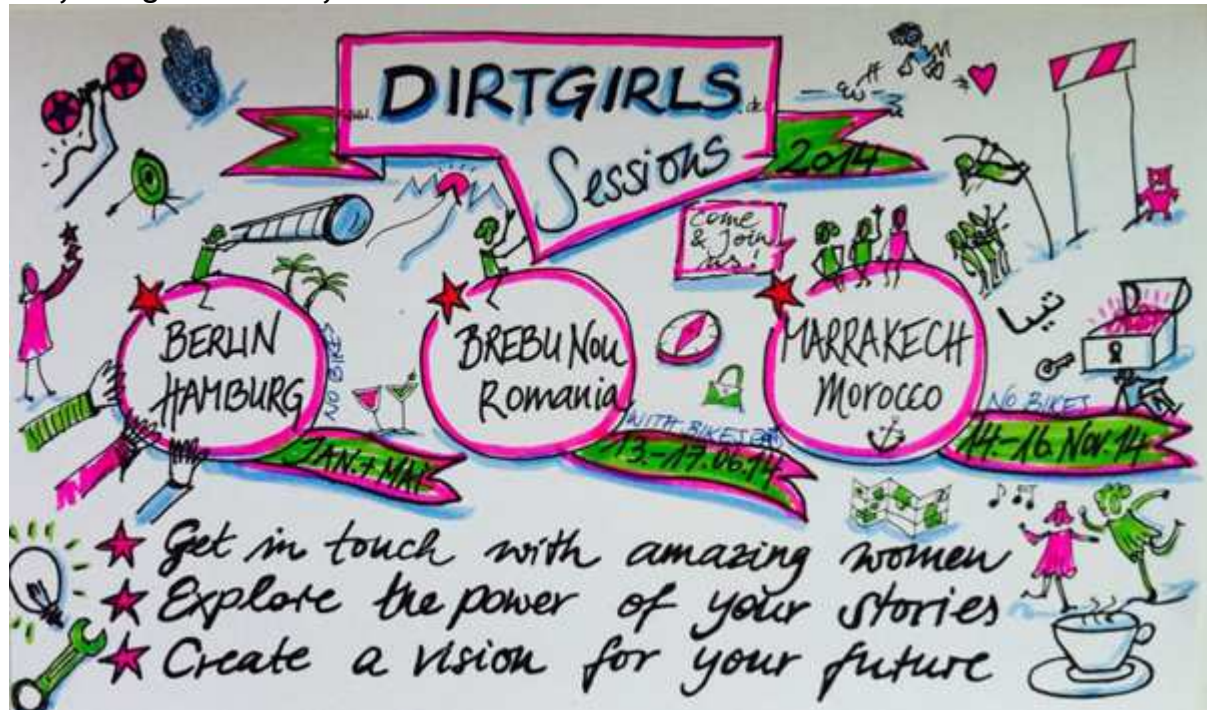 www.DIRTGIRLS.de
Sessions
2014
Come
& Join
us!
BERLIN
HAMBURG
NO BIKES
JAN.+MAI
BREBU NOU
Romania
WITH BIKES
13.-17.06.14
MARRAKECH
Morocco
NO BIKES
14.-16.Nov.14
Get in touch with amazing women
Explore the power of your stories
Create a vision for your future